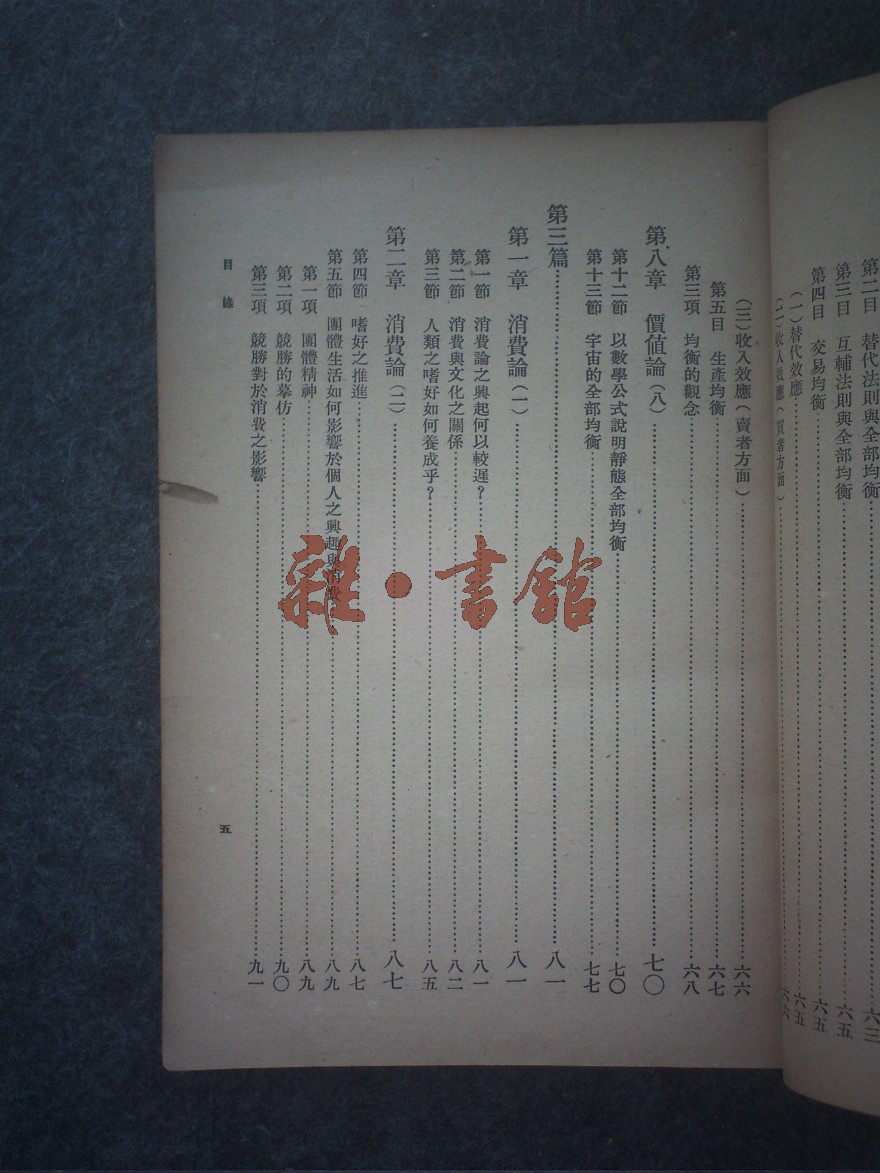 第二目　替代法則與全部均衡……六三
第三目　互輔法則與全部均衡……六五
第四目　交易均衡……六五
（一）替代效應……六五
（二）收入效應（買者方面）……六六
（三）收入效應（賣者方面）……六六
第五目　生產均衡……六七
第三項　均衡的觀念……六八
第八章　價值論（八）……七〇
第十二節　以數學公式說明靜態全部均衡……七〇
第十三節　宇宙的全部均衡……七七
第三篇……八一
第一章　消費論（一）……八一
第一節　消費論之興起何以較遲？……八一
第二節　消費與文化之關係……八二
第三節　人類之嗜好如何養成乎？……八五
第二章　消費論（二）……八七
第四節　嗜好之推進……八七
第五節　團體生活如何影響於個人之興趣與消費……八九
第一項　團體精神……八九
第二項　競勝的摹仿……九〇
第三項　競勝對於消費之影響……九一
目錄
五
雜·書館